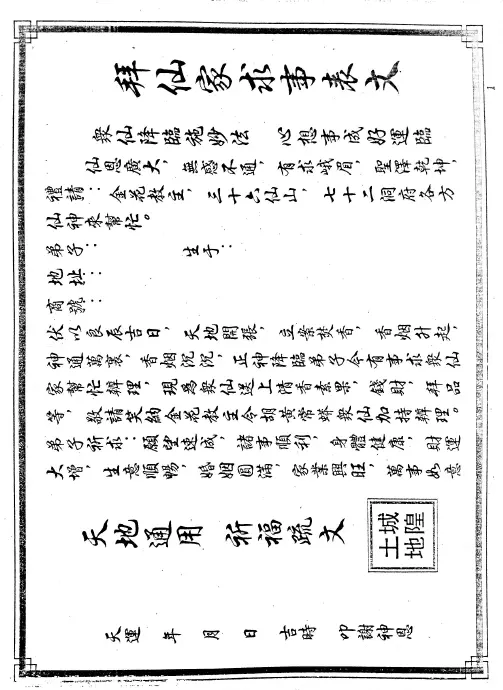 1
拜仙家求事表文
眾仙降臨施妙法 心想事成好運臨
仙恩廣大,無感不通,有求峨眉,聖澤乾坤,
禮請:金花教主,三十六仙山,七十二洞府各方
仙神來幫忙。
弟子: 生于:
地址:
商號:
伏以良辰吉日,天地開張,立案焚香,香烟升起,
神通萬裏,香烟沉沉,正神降臨弟子今有事求眾仙
家幫忙辦理,現爲眾仙送上清香素果,錢財,拜品
等,敬請笑納金花教主令胡黃常蟒眾仙加持辦理。
弟子祈求:願望速成,諸事順利,身體健康,財運
大增,生意順暢,婚姻圓滿,家業興旺,萬事如意
天地通用 祈福疏文
城隍
土地
天運 年 月 日 吉時 叩謝神恩